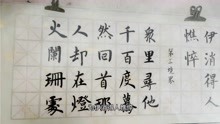 伊消得人
憔悴
第三境界
衆里尋他
千百度驀
然回首那
人却在燈
火闌珊處